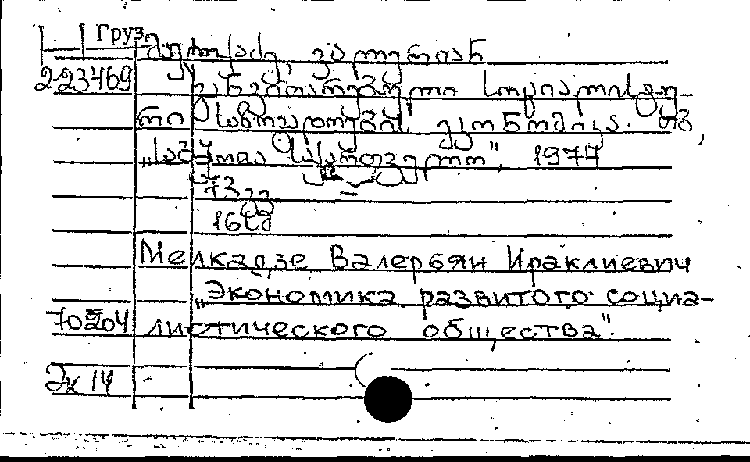 Груз.
მელქაძე, ვალერიან
223469 განვითარებული სოციალისტუ-
რი საზოგადოების ეკონომიკა. თბ.,
„საბჭოთა საქართველო", 1977
72 გვ
16სმ
Мелкадзе Валерьян Ираклиевич
„Экономика развитого социа-
70204 листического общества".